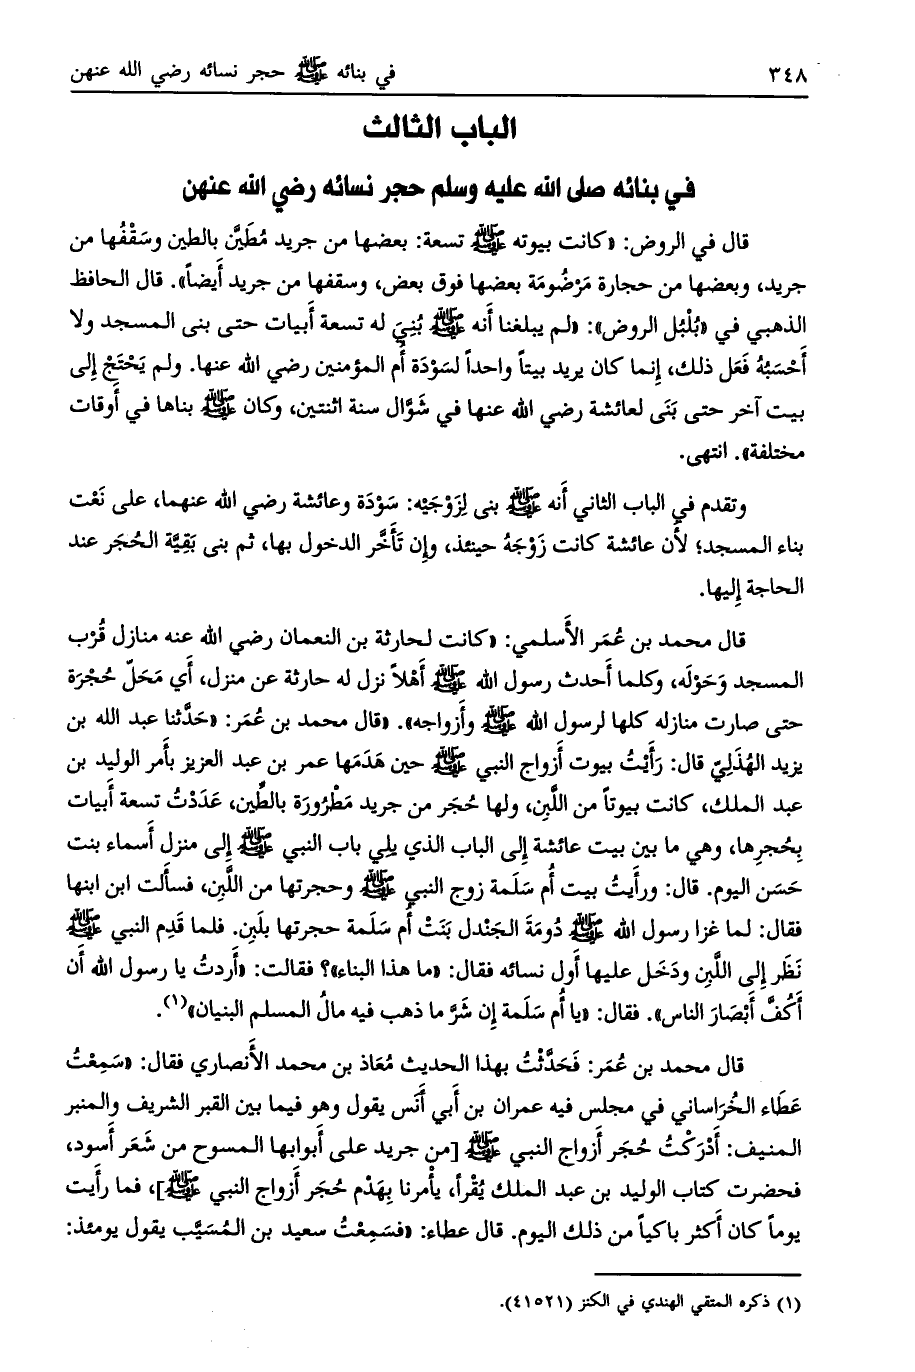 ٣٤٨ في بنائه ﷺ حجر نسائه رضي الله عنهن
الباب الثالث
في بنائه صلى الله عليه وسلم حجر نسائه رضي الله عنهن
قال في الروض: «كانت بيوته ﷺ تسعة: بعضها من جريد مُطَيَّن بالطين وسَقْفُها من
جريد، وبعضها من حجارة مَرْضُومَة بعضها فوق بعض، وسقفها من جريد أَيضاً». قال الحافظ
الذهبي في «بُلْبُل الروض»: «لم يبلغنا أَنه ﷺ بُنِيَ له تسعة أَبيات حتى بنى المسجد ولا
أَحْسَبُهُ فَعَل ذلك، إِنما كان يريد بيتاً واحداً لسَوْدَة أُم المؤمنين رضي الله عنها. ولم يَحْتَجْ إِلى
بيت آخر حتى بَنَى لعائشة رضي الله عنها في شَوَّال سنة اثنتين، وكان ﷺ بناها في أَوقات
مختلفة». انتهى.
وتقدم في الباب الثاني أَنه ﷺ بنى لِزَوْجَيْه: سَوْدَة وعائشة رضي الله عنهما، على نَعْت
بناء المسجد؛ لأَن عائشة كانت زَوْجَهُ حينئذ، وإِن تَأَخَّر الدخول بها، ثم بنى بَقِيَّة الحُجَر عند
الحاجة إِليها.
قال محمد بن عُمَر الأَسلمي: «كانت لحارثة بن النعمان رضي الله عنه منازل قُرْب
المسجد وَحَوْلَه، وكلما أَحدث رسول الله ﷺ أَهْلاً نزل له حارثة عن منزل، أَي مَحَلّ حُجْرَة
حتى صارت منازله كلها لرسول الله ﷺ وأَزواجه». «قال محمد بن عُمَر: «حَدَّثنا عبد الله بن
يزيد الهُذَلِيّ قال: رَأَيْتُ بيوت أَزواج النبي ﷺ حين هَدَمَها عمر بن عبد العزيز بأَمر الوليد بن
عبد الملك، كانت بيوتاً من اللَّبِن، ولها حُجَر من جريد مَطْرُورَة بالطِّين، عَدَدْتُ تسعة أَبيات
بِحُجرِها، وهي ما بين بيت عائشة إِلى الباب الذي يلي باب النبي ﷺ إِلى منزل أَسماء بنت
حَسَن اليوم. قال: ورأَيتُ بيت أُم سَلَمة زوج النبي ﷺ وحجرتها من اللَّبِن، فسأَلت ابن ابنها
فقال: لما غزا رسول الله ﷺ دُومَةَ الجَنْدل بَنَتْ أُم سَلَمة حجرتها بلَبِن. فلما قَدِم النبي ﷺ
نَظَر إِلى اللَّبِن ودَخَل عليها أَول نسائه فقال: «ما هذا البناء»؟ فقالت: «أَردتُ يا رسول الله أَن
أَكُفَّ أَبْصَارَ الناس». فقال: «يا أُم سَلَمة إِن شَرَّ ما ذهب فيه مالُ المسلم البنيان»(١).
قال محمد بن عُمَر: فَحَدَّثْتُ بهذا الحديث مُعَاذ بن محمد الأَنصاري فقال: «سَمِعْتُ
عَطَاء الخُرَاساني في مجلس فيه عمران بن أَبي أَنَس يقول وهو فيما بين القبر الشريف والمنبر
المنيف: أَدْرَكْتُ حُجَر أَزواج النبي ﷺ [من جريد على أَبوابها المسوح من شَعَر أَسود،
فحضرت كتاب الوليد بن عبد الملك يُقْرأ، يأْمرنا بِهَدْم حُجَر أَزواج النبي ﷺ]، فما رأَيت
يوماً كان أَكثر باكياً من ذلك اليوم. قال عطاء: «فسَمِعْتُ سعيد بن المُسَيَّب يقول يومئذ:
(١) ذكره المتقي الهندي في الكنز (٤١٥٢١).